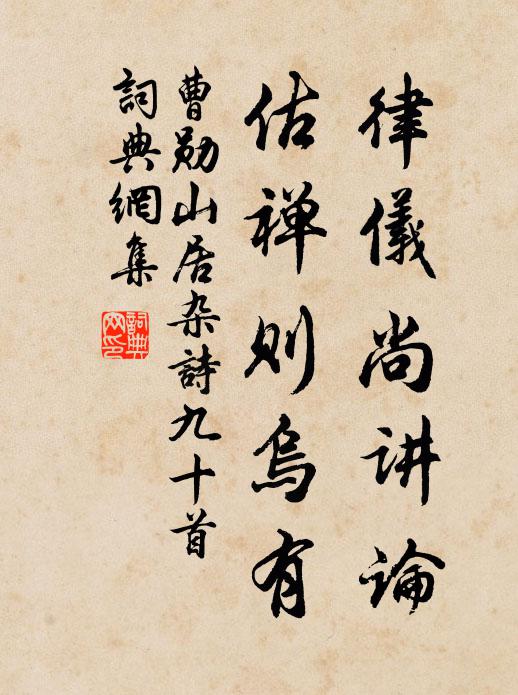 律儀尚讲論
估禅则烏有
曹勋山居杂詩九十首
詞典網集
詞典網印